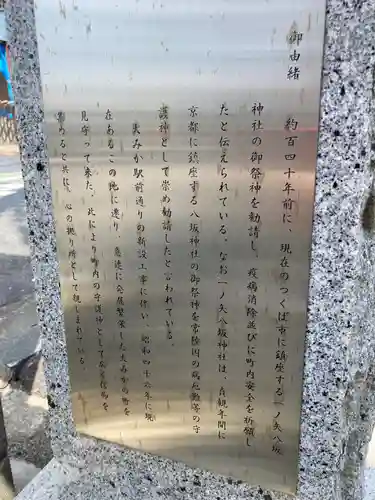 御由緒
約百四十年前に、現在のつくば市に鎮座する一ノ矢八坂
神社の御祭神を勧請し、疫病消除並びに町内安全を祈願し
たと伝えられている。なお一ノ矢八坂神社は、貞観年間に
京都に鎮座する八坂神社の御祭神を常陸国の疫厄難等の守
護神として崇め勧請したと言われている。
大みか駅前通りの新設工事に伴い、昭和四十六年に現
在あるこの地に遷り、急速に発展繁栄した大みかの町を
見守って来た。此により町内の守護神として
ると共に、心の拠り所として親しまれている。